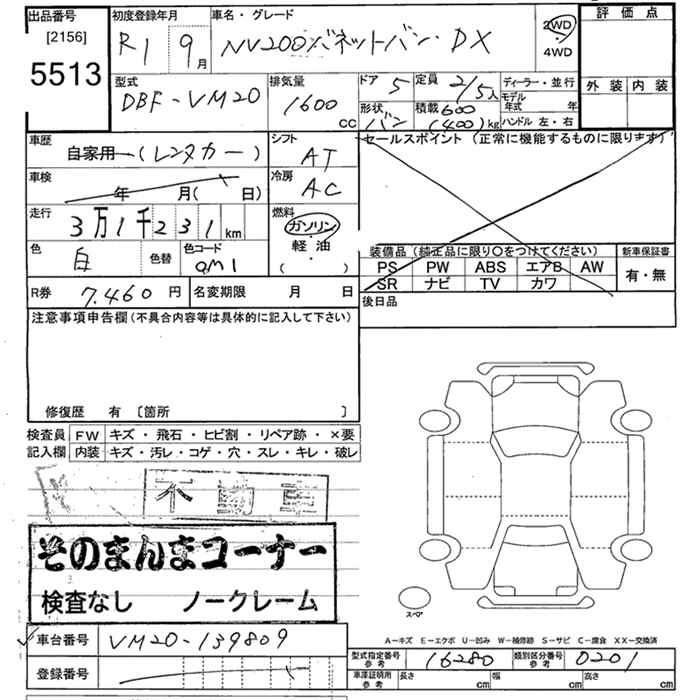 出品番号
[2156]
5513
初度登録年月
R1 9月
車名・グレード
NV200バネットバン・DX
2WD
・
4WD
評価点
外装 内装
型式
DBF-VM20
排気量
1600
CC
ドア 5
定員 2/5人
形状 バン
積載 600
(400)kg
ディーラー・並行
モデル年式 年
ハンドル 左・右
車歴
自家用 (レンタカー)
シフト
AT
セールスポイント (正常に機能するものに限ります)
車検
年 月( 日)
冷房
AC
走行
3万1千231km
燃料
ガソリン
・
軽油
( )
色
白
色替
色コード
QM1
装備品 (純正品に限り〇をつけてください)
PS PW ABS エアB AW
SR ナビ TV カワ
新車保証書
有・無
R券 7.460円
名変期限 月 日
後日品
注意事項申告欄 (不具合内容等は具体的に記入して下さい)
修復歴 有 [箇所 ]
検査員記入欄
FW キズ・飛石・ヒビ割・リペア跡・×要
内装 キズ・汚レ・コゲ・穴・スレ・キレ・破レ
不動車
そのまんまコーナー
検査なし ノークレーム
スペア
A-キズ E-エクボ U-凹み W-補修跡 S-サビ C-腐食 XX-交換済
車台番号 VM20-139809
登録番号
型式指定番号 参考 16280
類別区分番号 参考 0201
車庫証明用 参考 長さ cm 幅 cm 高さ cm